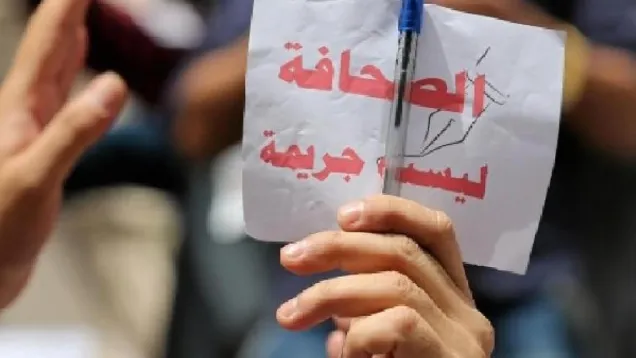 الصحافة
ليست جريمة